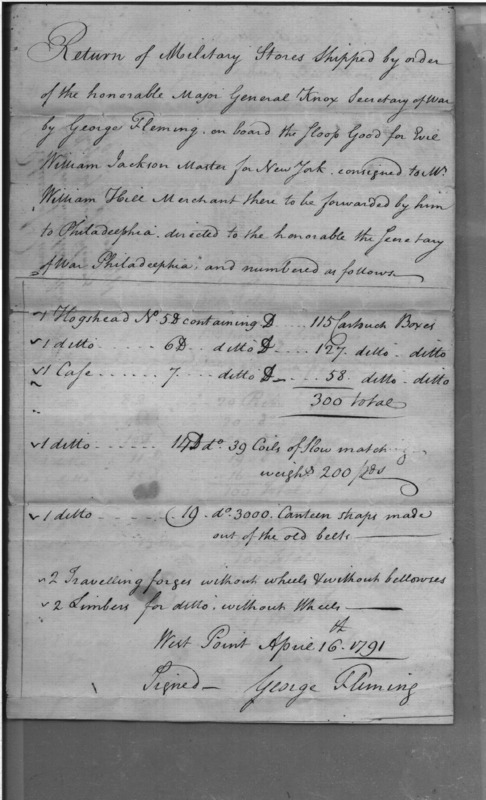 Return of Military Stores Shipped by order
of the honorable Major General Knox Secretary of War
by George Fleming. on board the Sloop Good for Evil
William Jackson Master for New York. consigned to Mr
William Hill Merchant there to be forwarded by him
to Philadelphia. directed to the honorable the Secretary
of War Philadelphia. and numbered as follows
1 Hogshead No. 5 D containing D .... 115 Cartouch Boxes
1 ditto ...... 6 D .. ditto D .... 127 . ditto . ditto
1 Case ..... 7 .... ditto D .... 58 . ditto . ditto
300 total
1 ditto ...... 14 D do. 39 Coils of slow match
weighg 200 lbs
1 ditto ...... 19 . do. 3000. Canteen straps made
out of the old belts
2 Travelling forges without wheels & without bellowses
2 Limbers for ditto. without Wheels
West Point April 16th. 1791
Signed — George Fleming